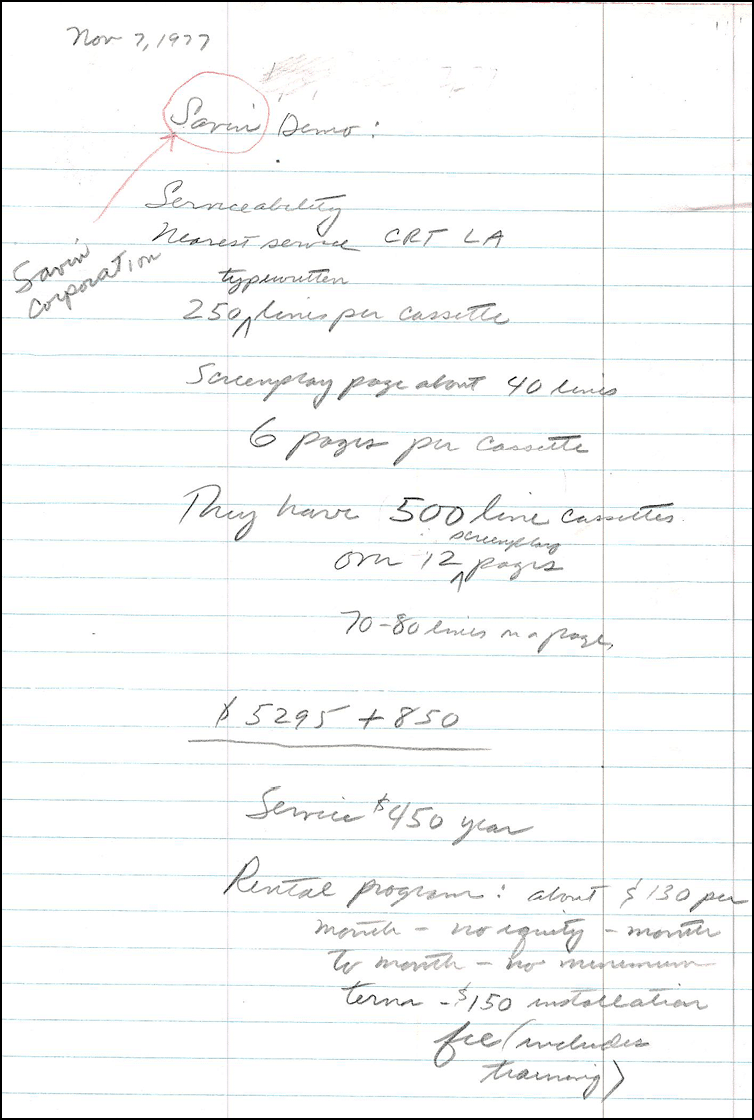 Nov 7, 1977
Savin Demo:
Serviceability
Nearest service CRT LA
Savin
Corporation
typewritten
250 ^ lines per cassette
Screenplay page about 40 lines
6 pages per cassette
They have 500 line cassettes
screenplay
over 12 ^ pages
70-80 lines on a page,
$5295 + 850
Service $450 year
Rental program: about $130 per
month - no equity - month
to month - no minimum
term - $150 installation
fee (includes
training)